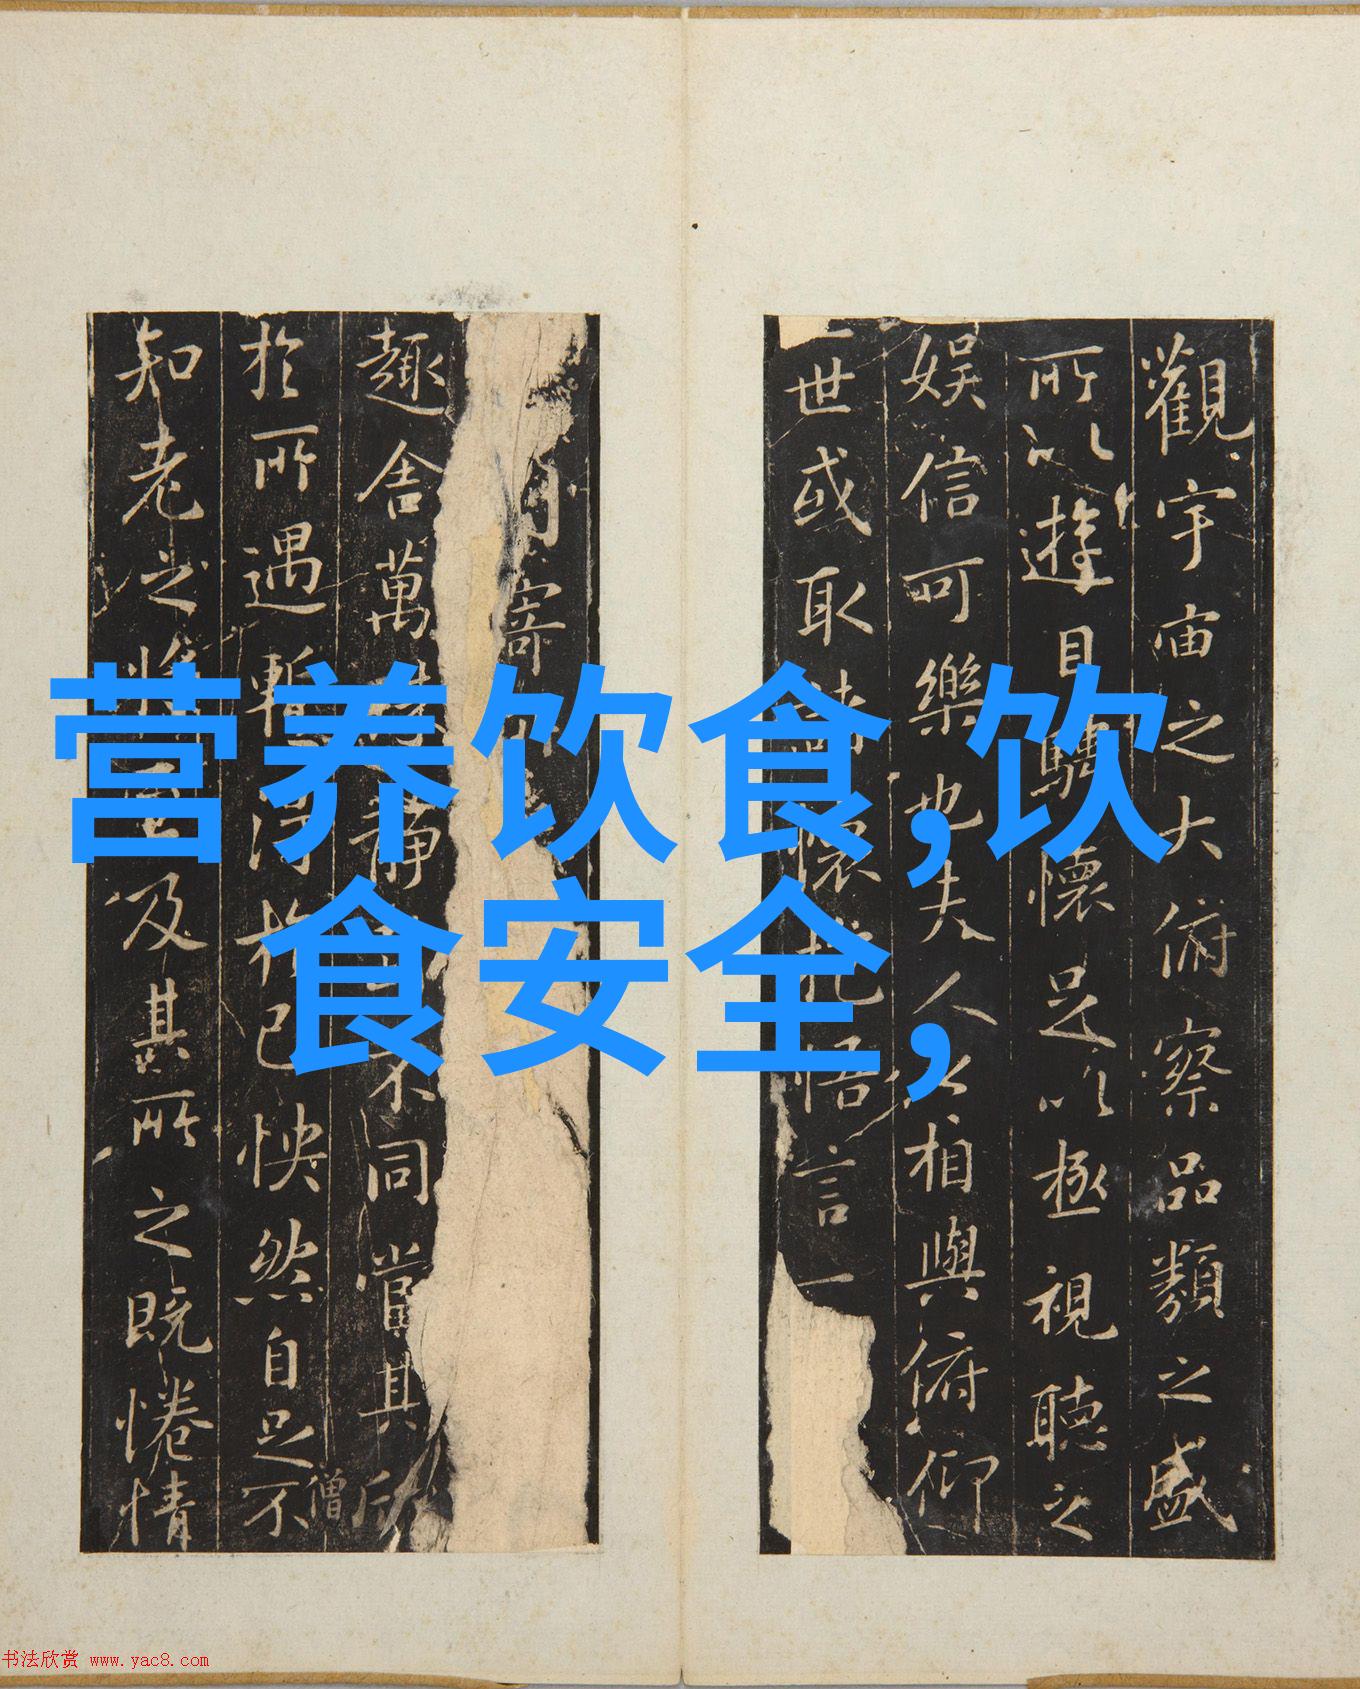 营养饮食,饮
食安全,
觀宇宙之大俯察品類之盛
所以遊目騁懷足以極視聽之
娛信可樂也夫人之相與俯仰
一世或取諸懷抱悟言一
寄
趣舍萬殊靜不同當其欣
僧
於所遇暫得於己怏然自足不
知老之將至及其所之既惓情
书法欣赏 www.yac8.com